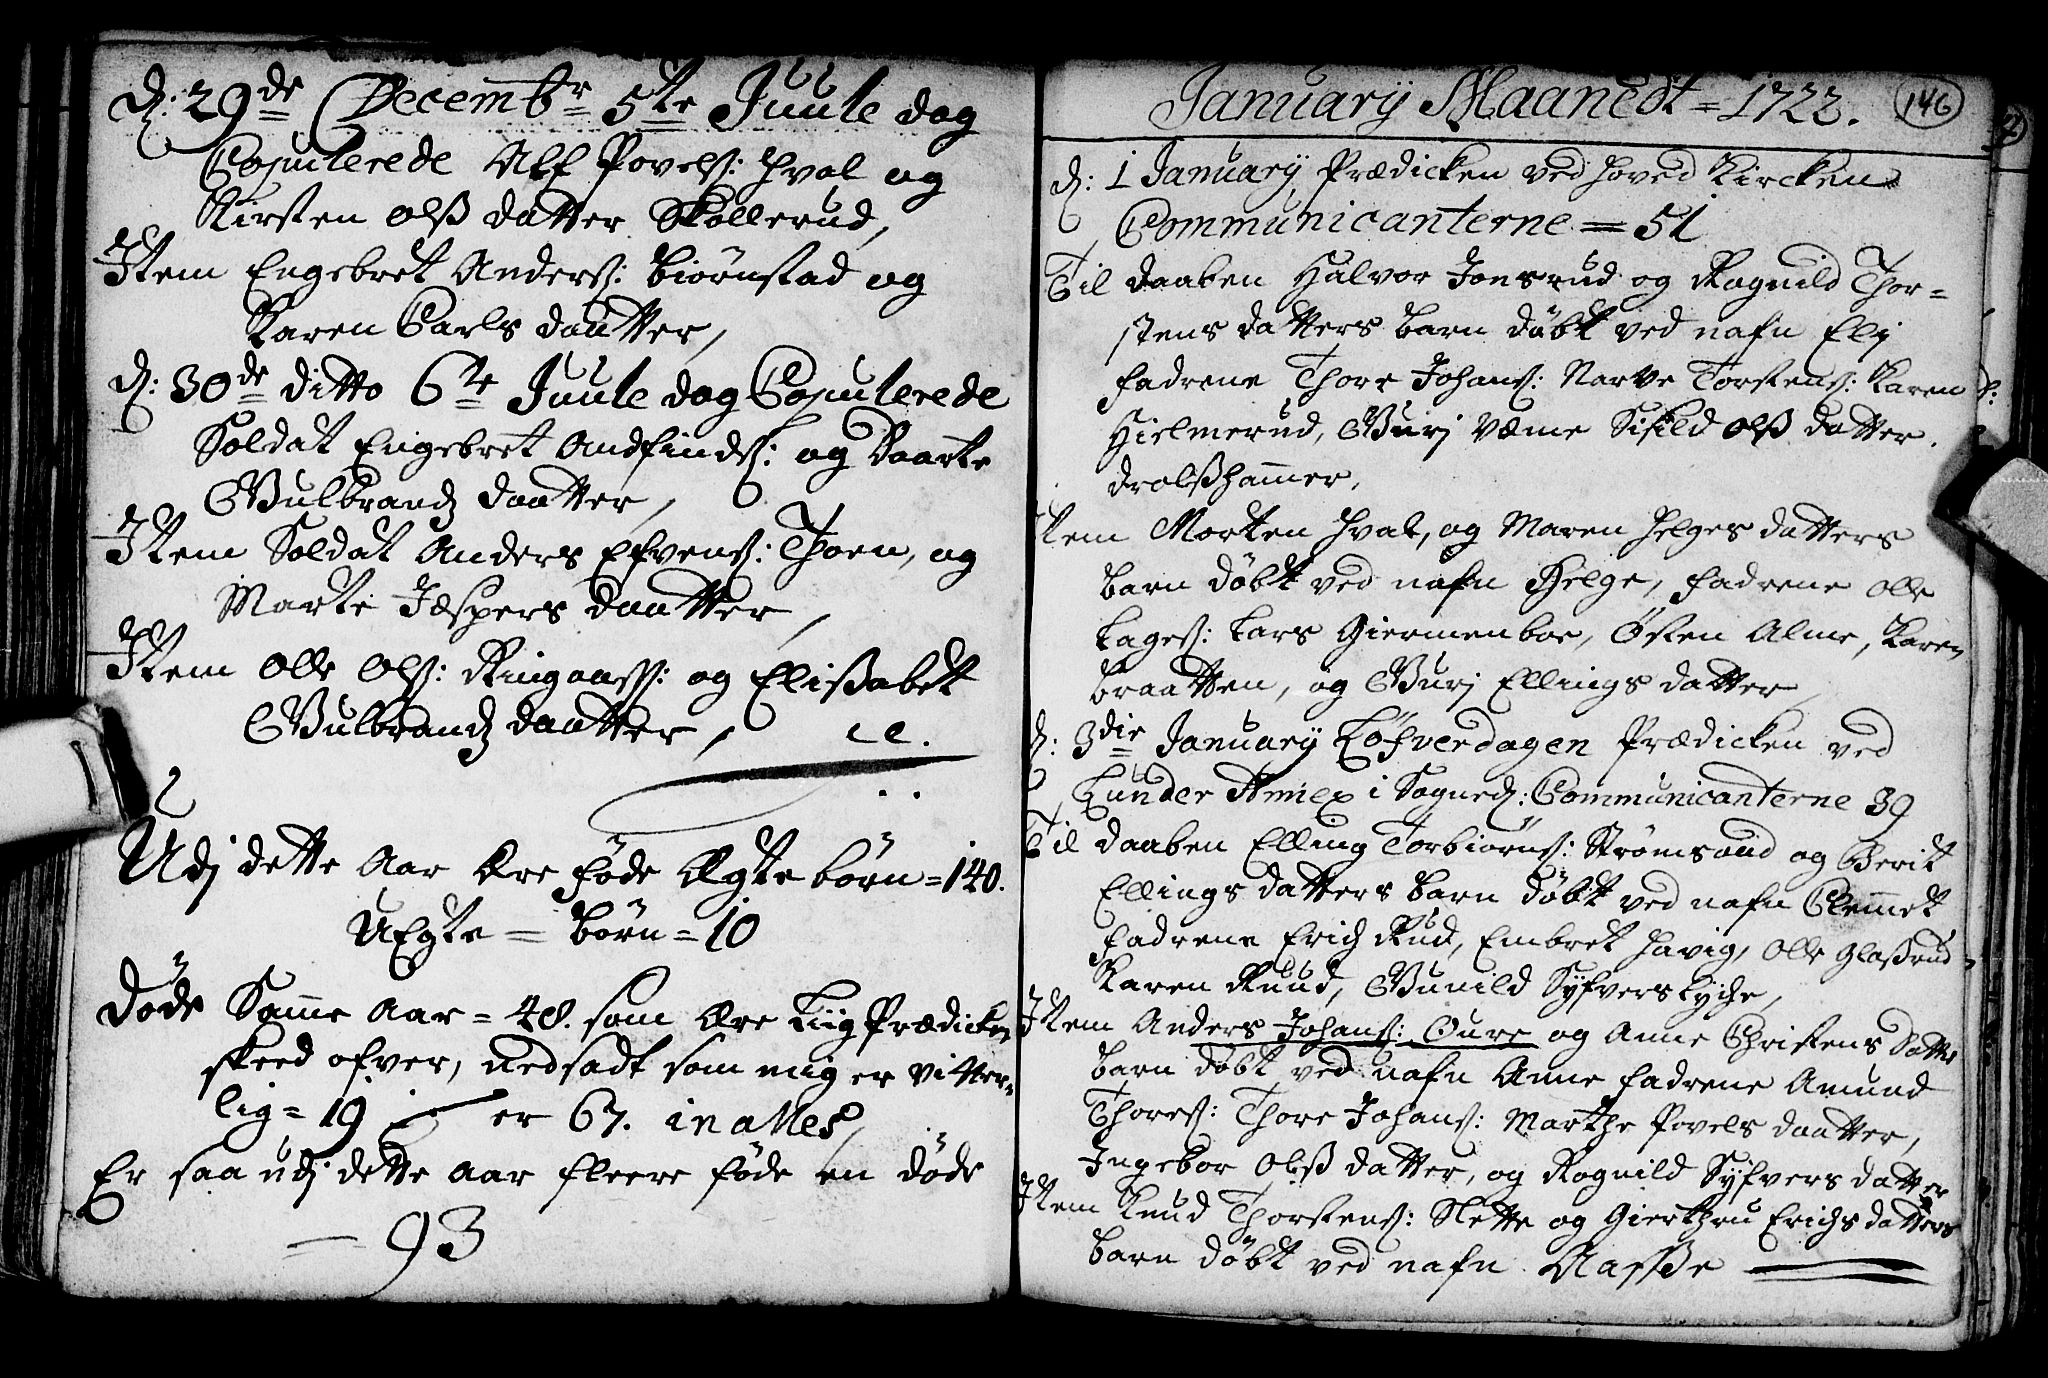 D: 29de Decembr 5te Juule dag
Copulerede Alf Povels: Hval og
Kirsten Olß datter Skollerud,
Item Engebret Anders: Biørnstad og
Karen Carls daatter,
D: 30de ditto 6te Juule dag Copulerede
Soldat Engebret Andfinds: og Baarte
Gulbrands daatter,
Item Soldat Anders Efvens: Thoen, og
Marte Jæspers daatter,
Item Olle Ols: Ringaas: og Elißabet
Gulbrands daatter,
Udj dette Aar Ere føde Ægte børn = 140.
UEgte = børn = 10
Døde Samme Aar = 48. som Ere Liig Prædicken
skeed ofver, nedsadt som mig er vitter=
lig = 19 er 67. in alles,
Er saa udj dette aar fleere føde en døde
= 93
January Maanedt = 1722.
146
D: 1 January Prædicken ved Hoved Kircken
Communicanterne = 51
Til daaben Halvor Jonsrud og Ragnild Thor=
stens datters barn døbt ved nafn Elj
fadrene Thore Johans: Narve Torstens: Karen
Hielmerud, Gurj Væme Sisild Olß datter.
Drolßhammer,
Item Morten Hval, og Maren Helges datters
barn døbt ved nafn Helge, fadrene Olle
Lages: Lars Giermenboe, Østen Alme, Karen
braatten, og Gurj Ellings datter,
D: 3die January Løfverdagen Prædicken ved
Lunder Annex i Sogned: Communicanterne 39
Til daaben Elling Torbiørns: Strømsoed og Berit
Ellings datters barn døbt ved nafn Clemmet
fadrene Erich Rud, Embret Havig, Olle Glaßrud
Karen Ruud, Gunild Syfvers Lyche,
Item Anders Johans: Oure og Anne Christens datters
barn døbt ved nafn Anne fadrene Amund
Thores: Thore Johans: Marthe Povels daatter,
Ingebor Olß datter, og Ragnild Syfvers datter
Item Knud Thorstens: Slette og Gierthru Erichs datters
barn døbt ved nafn Aaßße